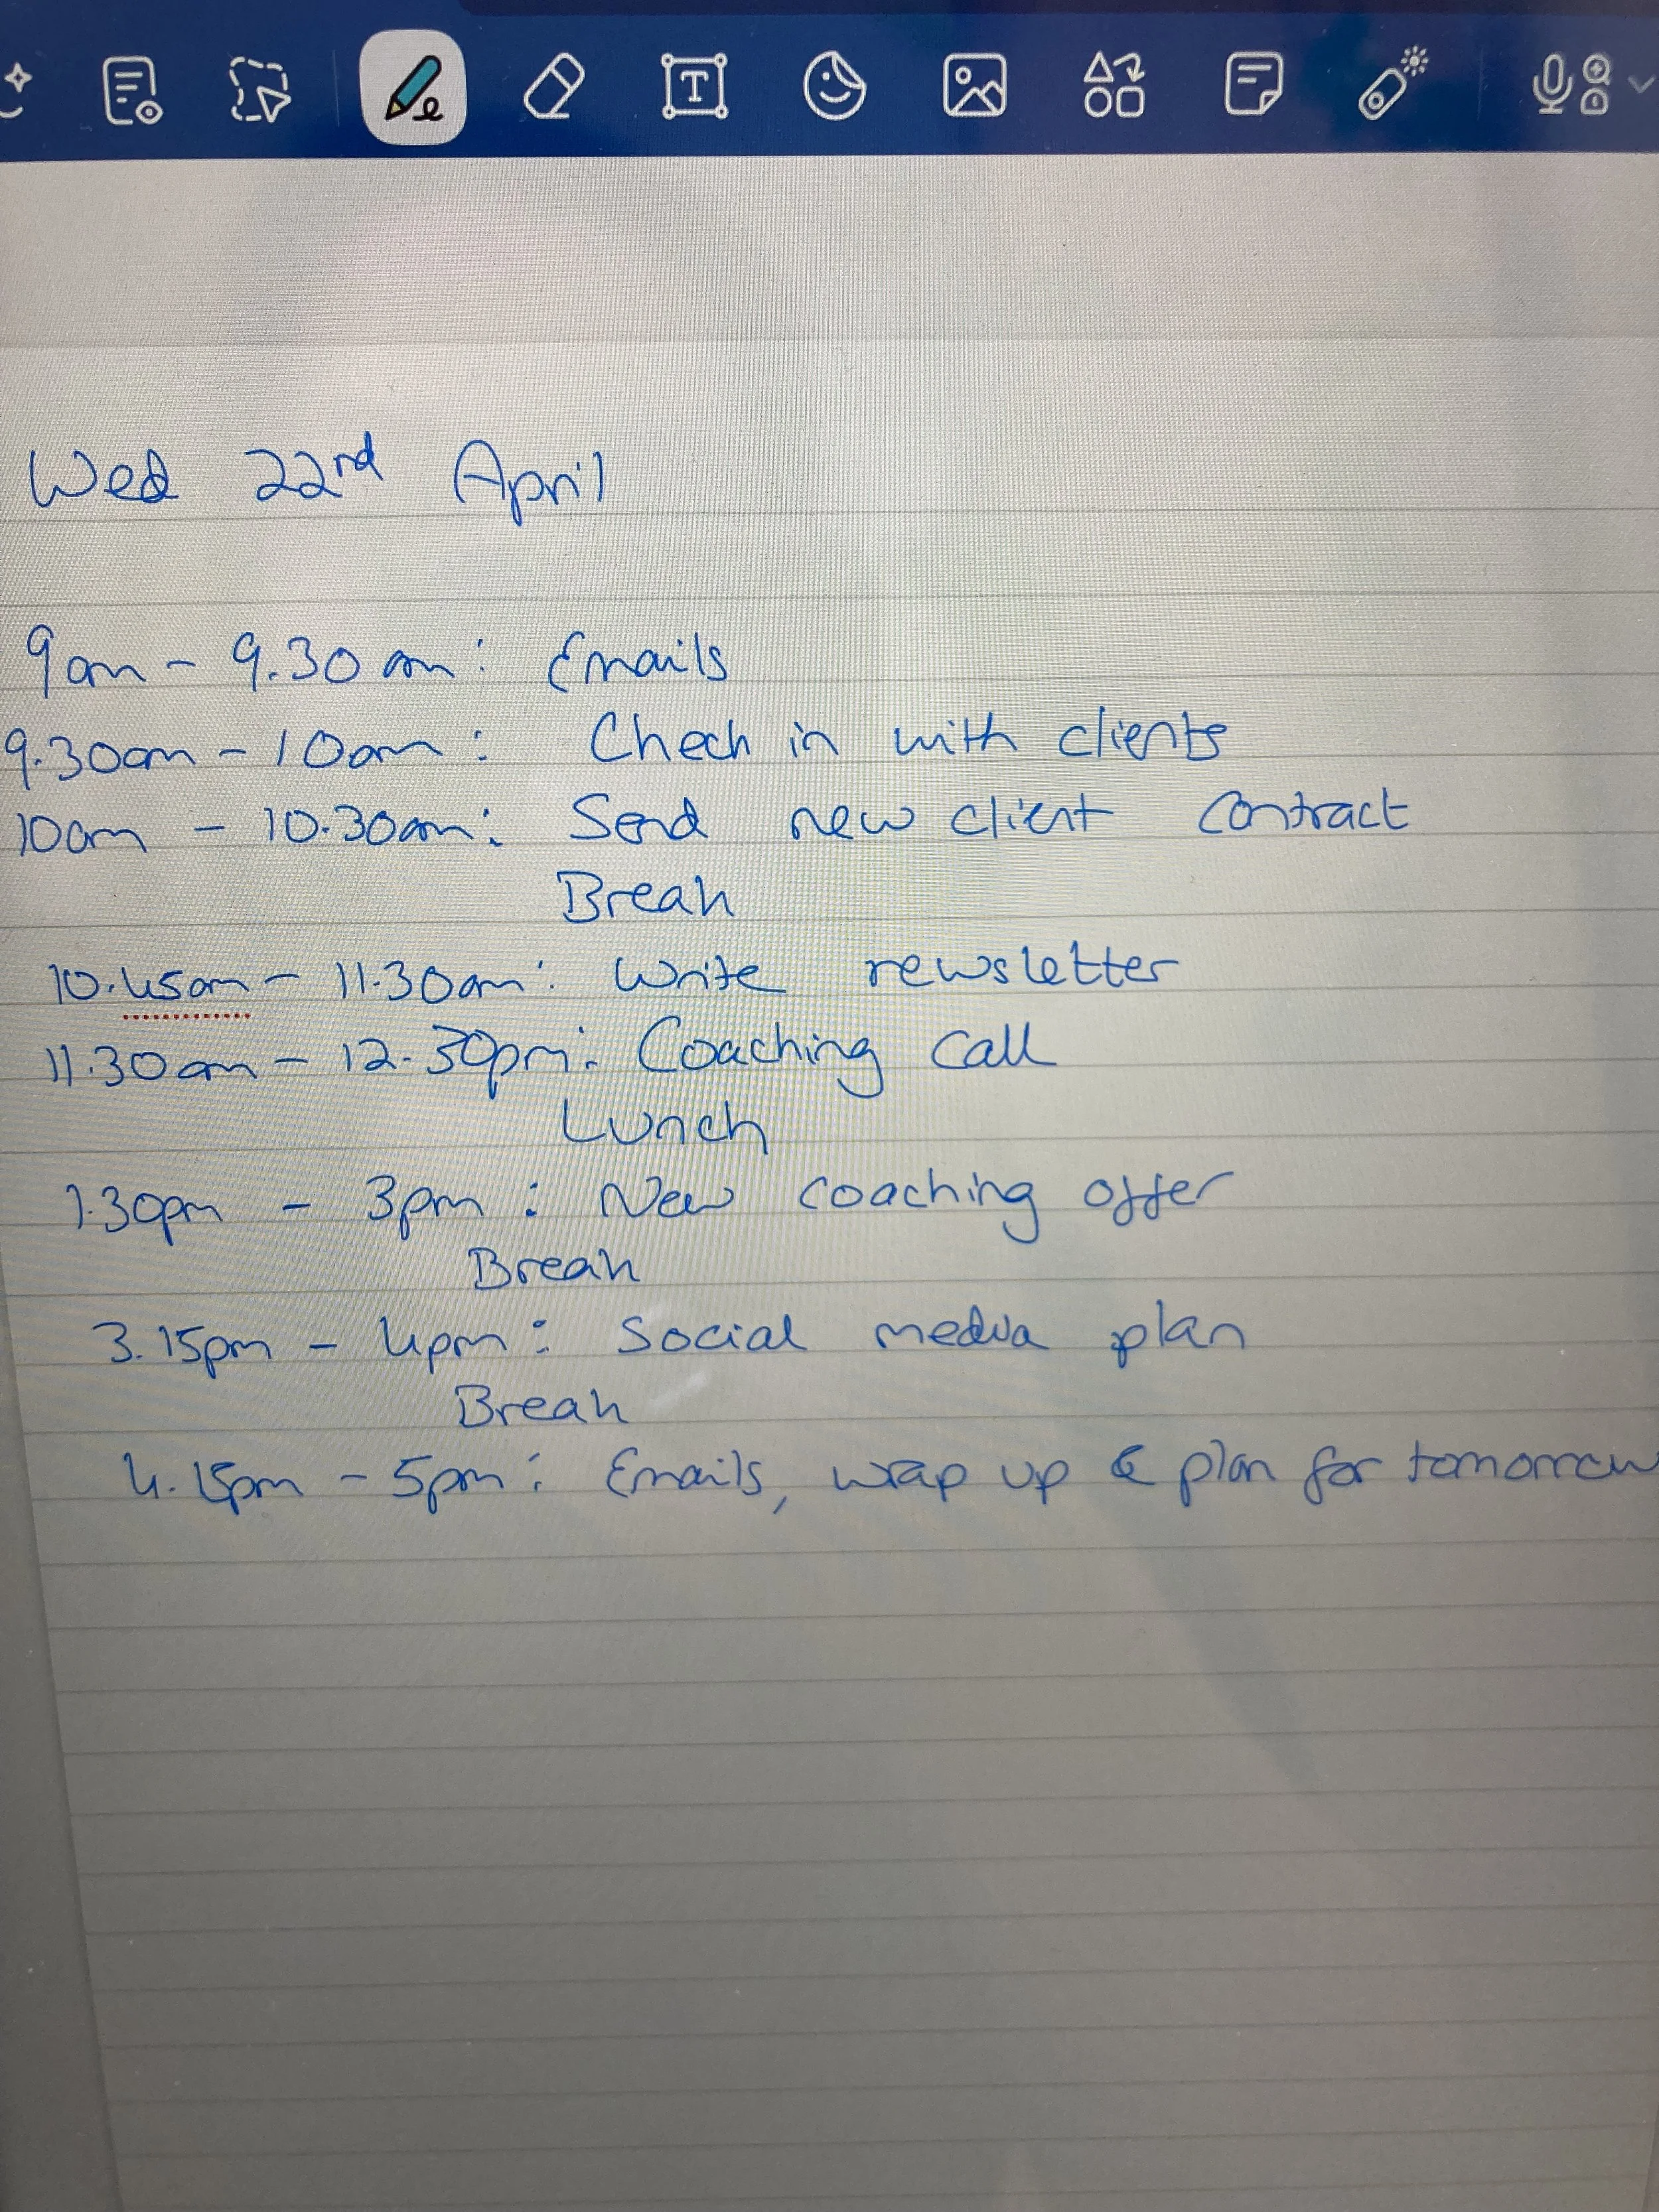 Wed 22nd April
9am - 9.30am: Emails
9.30am - 10am: Check in with clients
10am - 10.30am: Send new client contract
Break
10.45am - 11.30am: Write newsletter
11.30am - 12.30pm: Coaching Call
Lunch
1.30pm - 3pm: New coaching offer
Break
3.15pm - 4pm: Social media plan
Break
4.15pm - 5pm: Emails, wrap up & plan for tomorrow